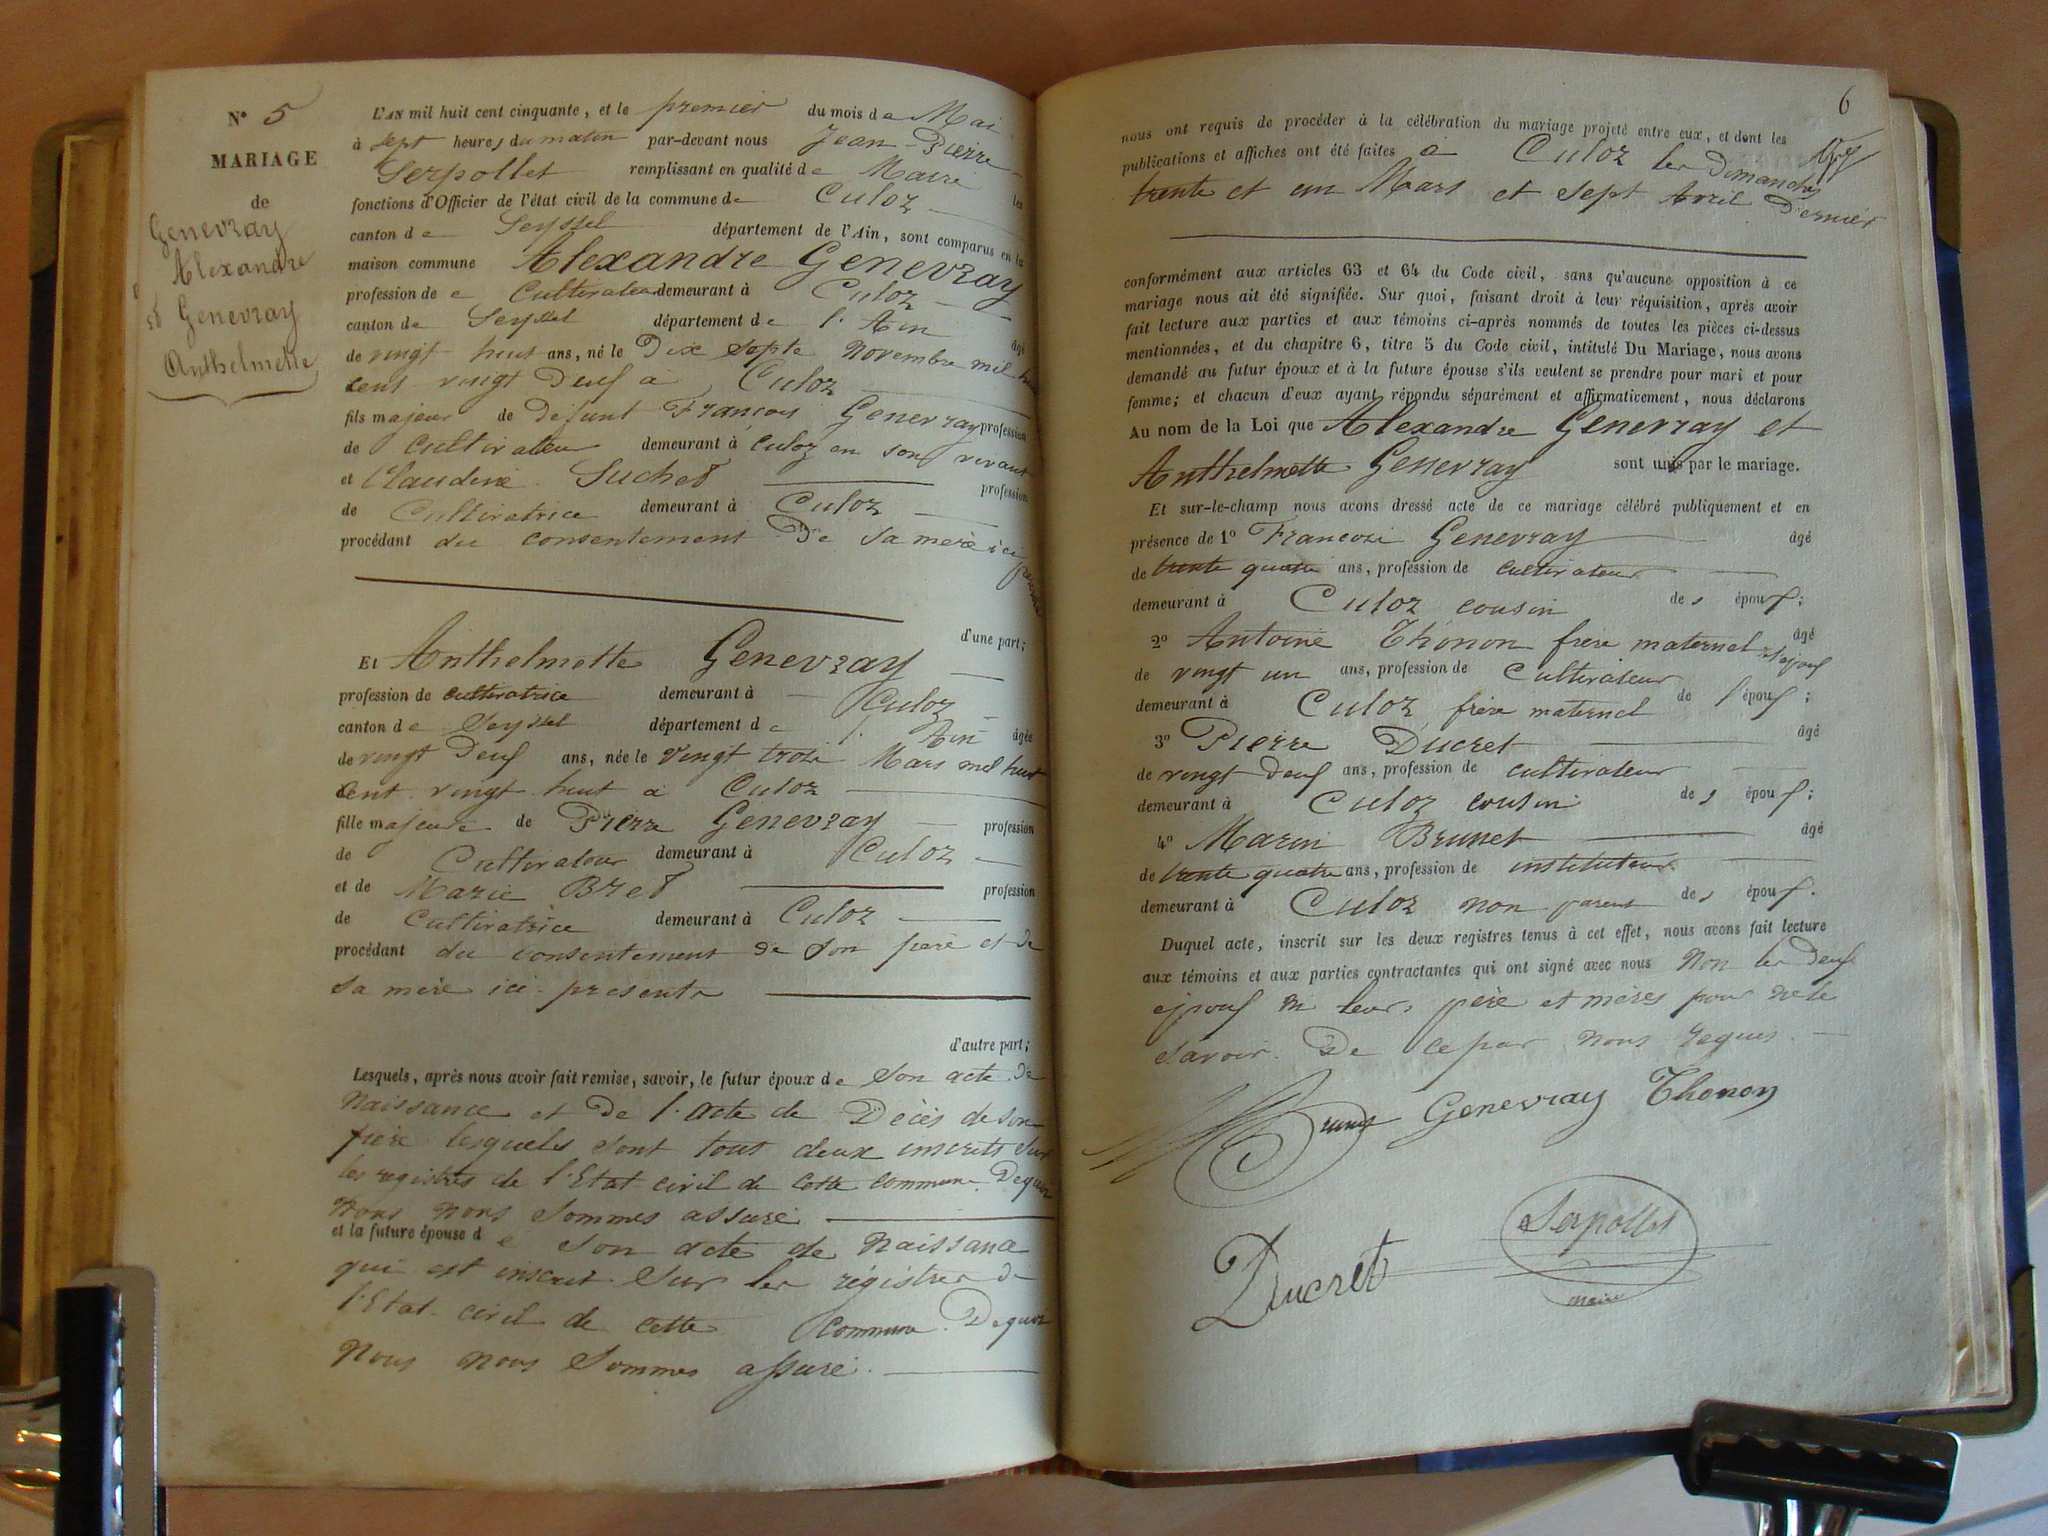 N° 5
MARIAGE
de
Genevray
Alexandre
et Genevray
Anthelmette
L'AN mil huit cent cinquante, et le premier du mois de Mai
à sept heures du matin par-devant nous Jean Pierre
Serpollet remplissant en qualité de Maire les
fonctions d'Officier de l'état civil de la commune de Culoz
canton de Seyssel département de l'Ain, sont comparus en la
maison commune Alexandre Genevray
profession de Cultivateur demeurant à Culoz
canton de Seyssel département de l'Ain âgé
de vingt huit ans, né le Dix septe novembre mil huit
cent vingt Deuf à Culoz
fils majeur de défunt François Genevray profession
de cultivateur demeurant à Culoz en son vivant
et Claudine Suchet profession
de Cultivatrice demeurant à Culoz
procédant du consentement De sa mère ici présente
d'une part;
Et Anthelmette Genevray
profession de cultivatrice demeurant à Culoz
canton de Seyssel département de l'Ain âgée
de vingt Deuf ans, née le vingt trois Mars mil huit
Cent vingt huit à Culoz
fille majeure de Pierre Genevray profession
de Cultivateur demeurant à Culoz
et de Marie Bret profession
de Cultivatrice demeurant à Culoz
procédant du consentement de son père et de
sa mère ici présents
d'autre part;
Lesquels, après nous avoir fait remise, savoir, le futur époux de son acte de
Naissance et de l'acte de Décès de son
père lesquels sont tous deux inscrits sur
les registres de l'Etat civil de cette commune. Dequoi
nous nous sommes assuré
et la future épouse de son acte de naissance
qui est inscrit sur les régistres de
l'Etat civil de cette commune. Dequoi
nous nous sommes assuré.
6
nous ont requis de procéder à la célébration du mariage projeté entre eux, et dont les
publications et affiches ont été faites à Culoz les Dimanches
trente et un Mars et sept Avril Dernier
conformément aux articles 63 et 64 du Code civil, sans qu'aucune opposition à ce
mariage nous ait été signifiée. Sur quoi, faisant droit à leur réquisition, après avoir
fait lecture aux parties et aux témoins ci-après nommés de toutes les pièces ci-dessus
mentionnées, et du chapitre 6, titre 5 du Code civil, intitulé Du Mariage, nous avons
demandé au futur époux et à la future épouse s'ils veulent se prendre pour mari et pour
femme; et chacun d'eux ayant répondu séparément et affirmativement, nous déclarons
Au nom de la Loi que Alexandre Genevray et
Anthelmette Genevray sont unis par le mariage.
Et sur-le-champ nous avons dressé acte de ce mariage célébré publiquement et en
présence de 1° Francois Genevray âgé
de trente quatre ans, profession de cultivateur
demeurant à Culoz cousin des époux;
2° Antoine Thonon frère maternel âgé
de vingt un ans, profession de Cultivateur
demeurant à Culoz frère maternel de l'époux;
3° Pierre Ducret âgé
de vingt Deuf ans, profession de cultivateur
demeurant à Culoz cousin des époux;
4° Marin Brunet âgé
de trente quatre ans, profession de instituteur
demeurant à Culoz non parent des époux.
Duquel acte, inscrit sur les deux registres tenus à cet effet, nous avons fait lecture
aux témoins et aux parties contractantes qui ont signé avec nous Non les deux
époux ni leurs père et mères pour ne le
savoir. De ce par nous requis.
Brunet Genevray Thonon
Ducret
Serpollet
maire